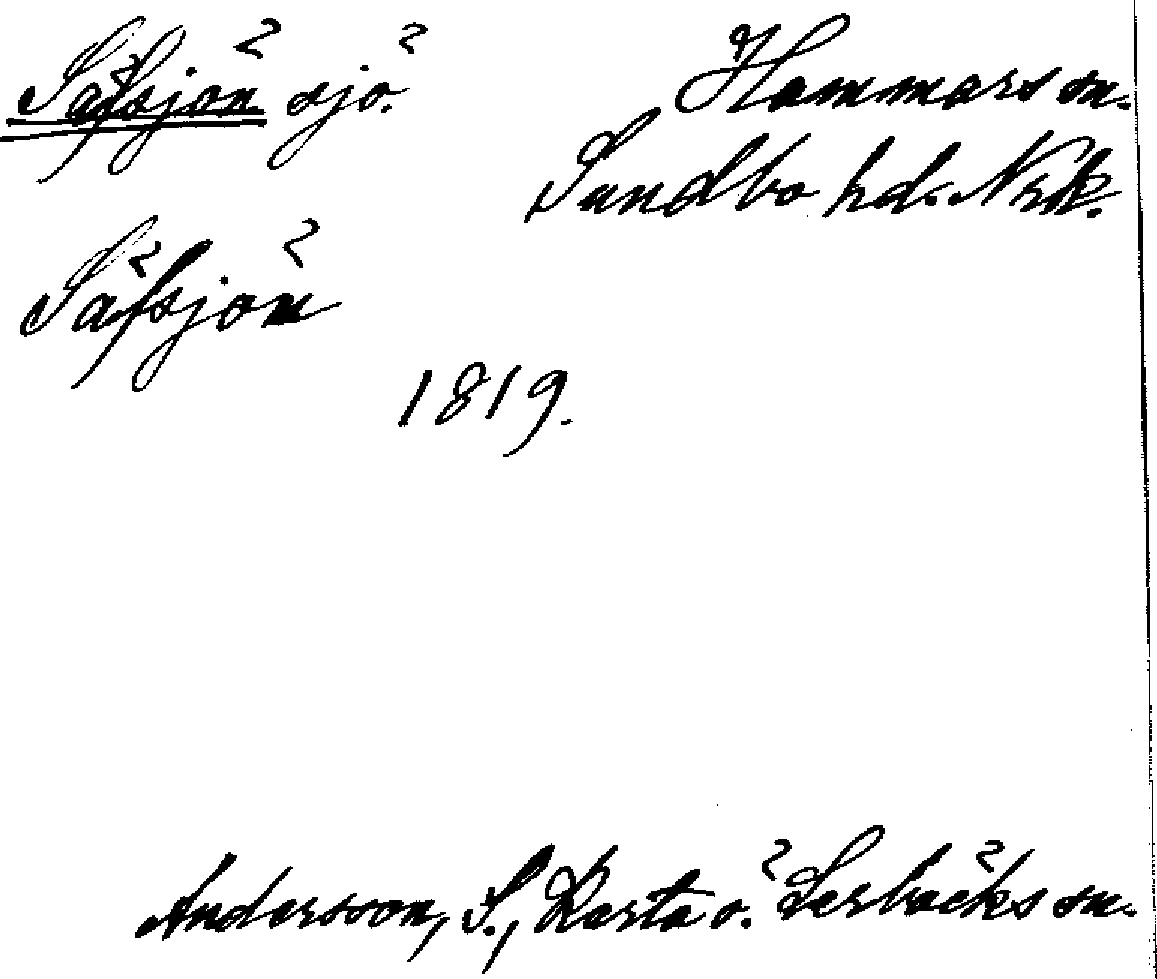 Säfsjön sjö.
Hammars sn.
Sundbo hd. Nrk.
Säfsjön
1819.
Andersson, S., Karta ö. Lerbäcks sn.